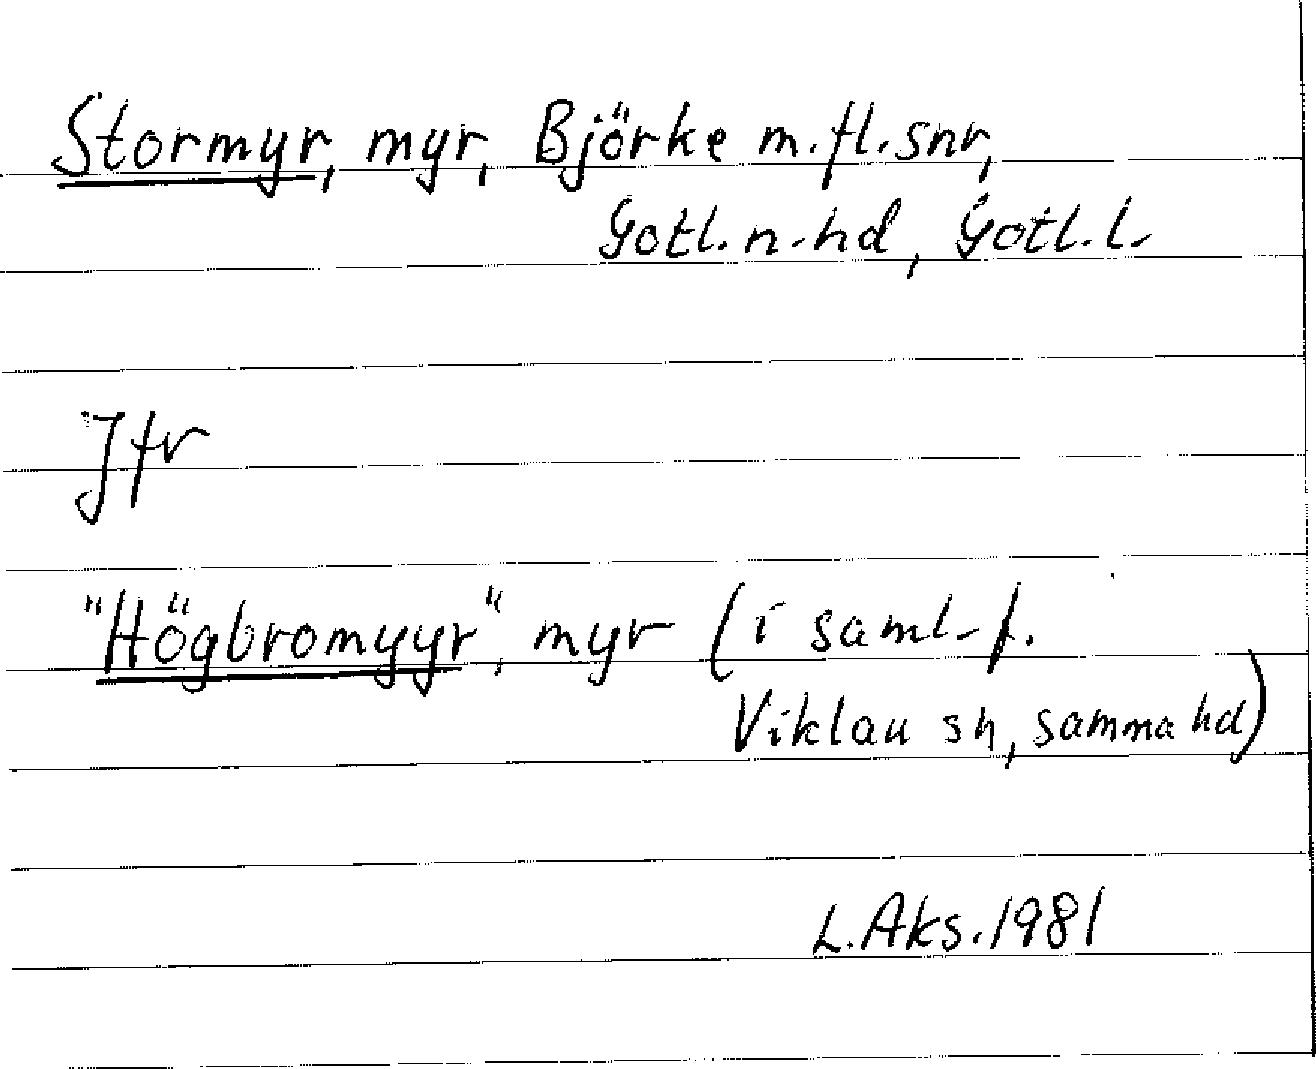 Stormyr, myr, Björke m.fl. snr,
Gotl. n. hd, Gotl. l.
Jfr
"Högbromyyr", myr (i saml. f.
Viklau sn, samma hd)
L. Aks. 1981